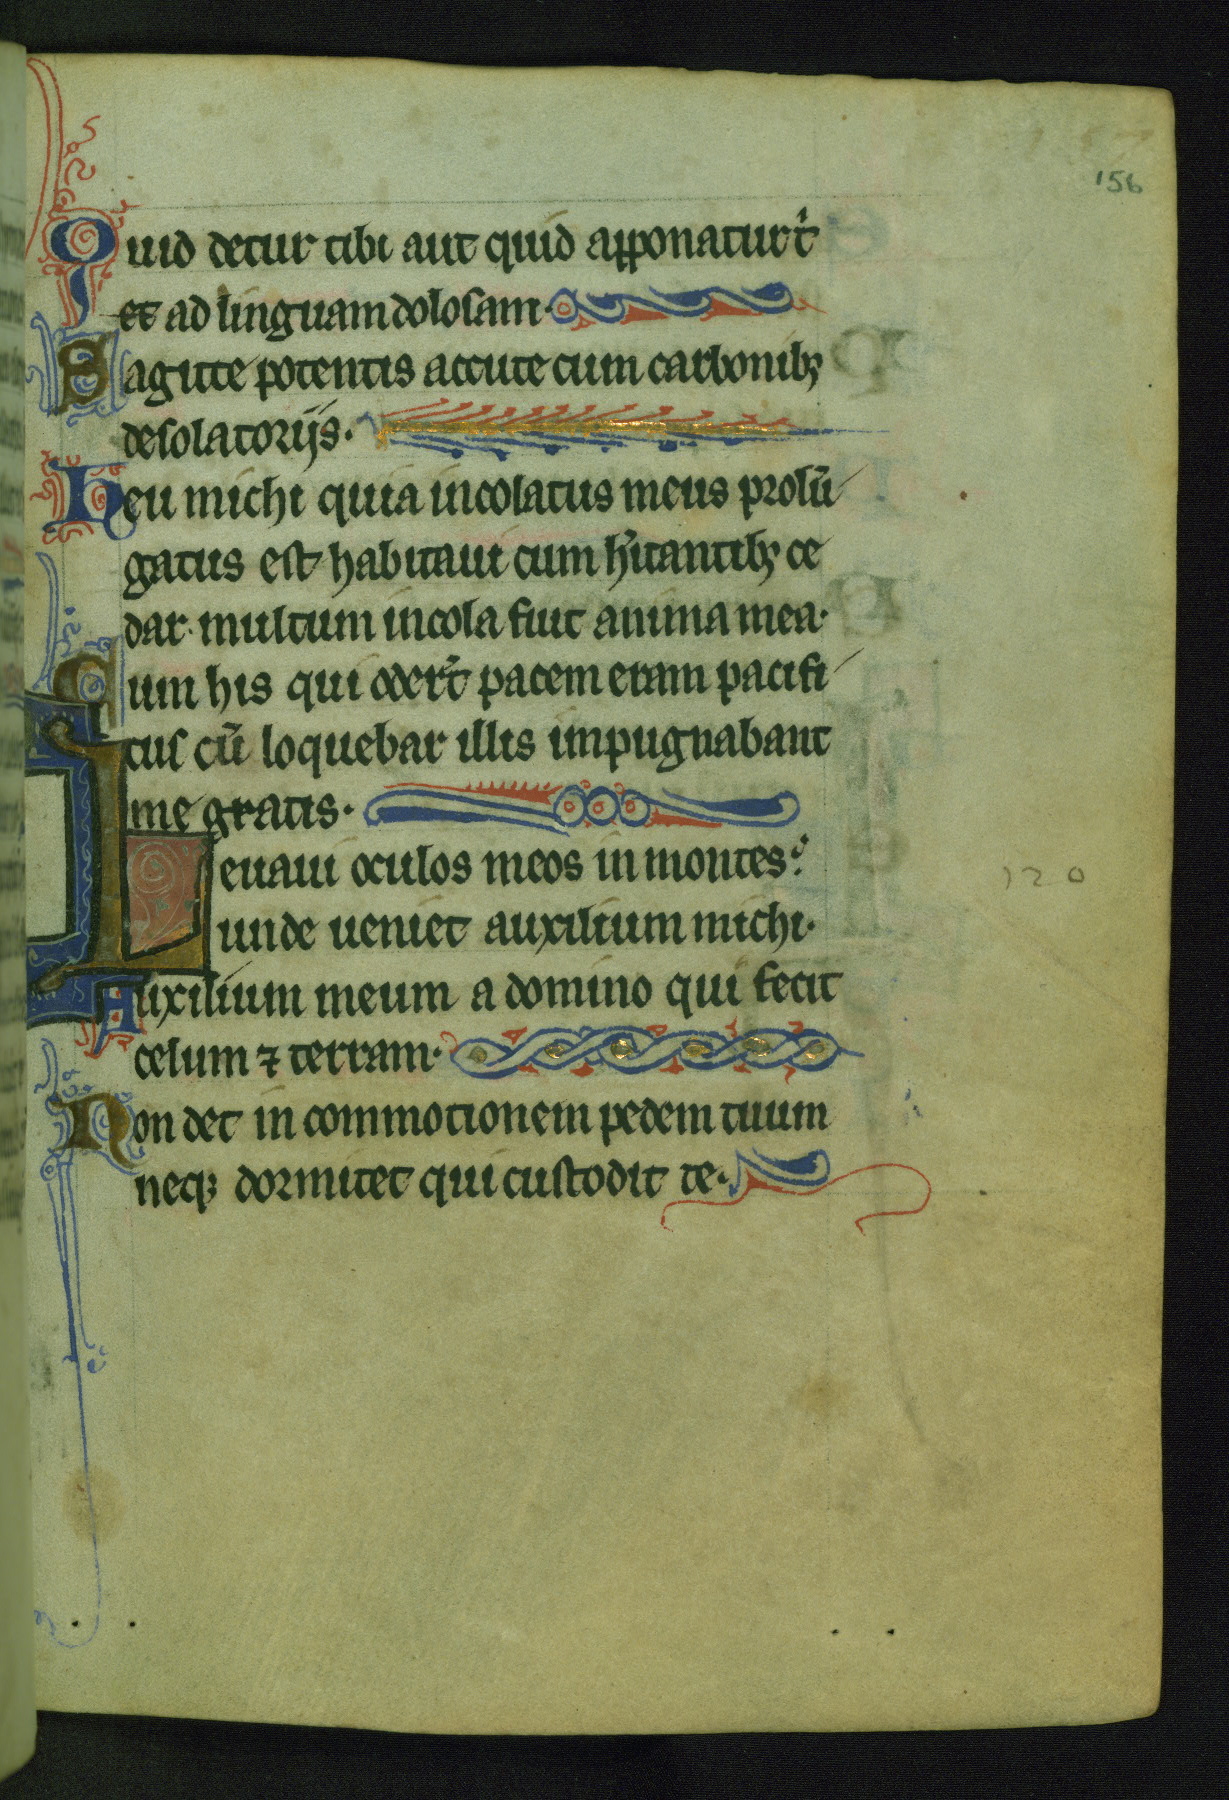 156
Quid detur tibi aut quid apponatur t̾
et ad linguam dolosam·
Sagitte potentis accute cum carbonibꝫ
desolatorijs·
Heu michi quia incolatus meus prolū
gatus est habitaui cum h̾itantibꝫ ce
dar· multum incola fuit anima mea·
Cum his qui oder̄t pacem eram pacifi
cus cū loquebar illis impugnabant
me gratis·
Leuaui oculos meos in montes:
unde ueniet auxilium michi·
120
Auxilium meum a domino qui fecit
celum ⁊ terram·
Non det in commotionem pedem tuum
neqꝫ dormitet qui custodit te·